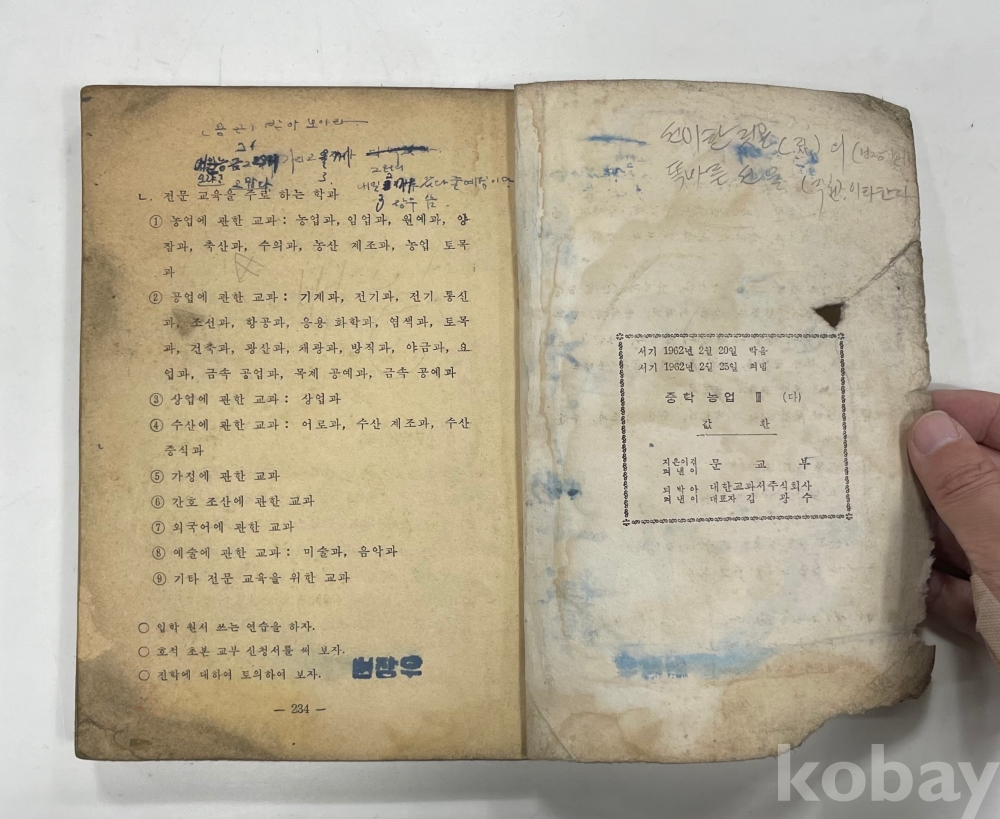 찾아 보아라
ㄴ. 전문 교육을 주로 하는 학과
① 농업에 관한 교과: 농업과, 임업과, 원예과, 양
잠과, 축산과, 수의과, 농산 제조과, 농업 토목
과
② 공업에 관한 교과: 기계과, 전기과, 전기 통신
과, 조선과, 항공과, 응용 화학과, 염색과, 토목
과, 건축과, 광산과, 채광과, 방직과, 야금과, 요
업과, 금속 공업과, 목제 공예과, 금속 공예과
③ 상업에 관한 교과: 상업과
④ 수산에 관한 교과: 어로과, 수산 제조과, 수산
증식과
⑤ 가정에 관한 교과
⑥ 간호 조산에 관한 교과
⑦ 외국어에 관한 교과
⑧ 예술에 관한 교과: 미술과, 음악과
⑨ 기타 전문 교육을 위한 교과
○ 입학 원서 쓰는 연습을 하자.
○ 호적 초본 교부 신청서를 써 보자.
○ 진학에 대하여 토의하여 보자.
— 234 —
똑바른 선을 이라한다
서기 1962년 2월 20일 박음
서기 1962년 2월 25일 펴냄
중학 농업 Ⅲ (다)
값 환
지은이겸
펴낸이 문 교 부
되박아 대한교과서주식회사
펴낸이 대표자 김 광 수
kobay